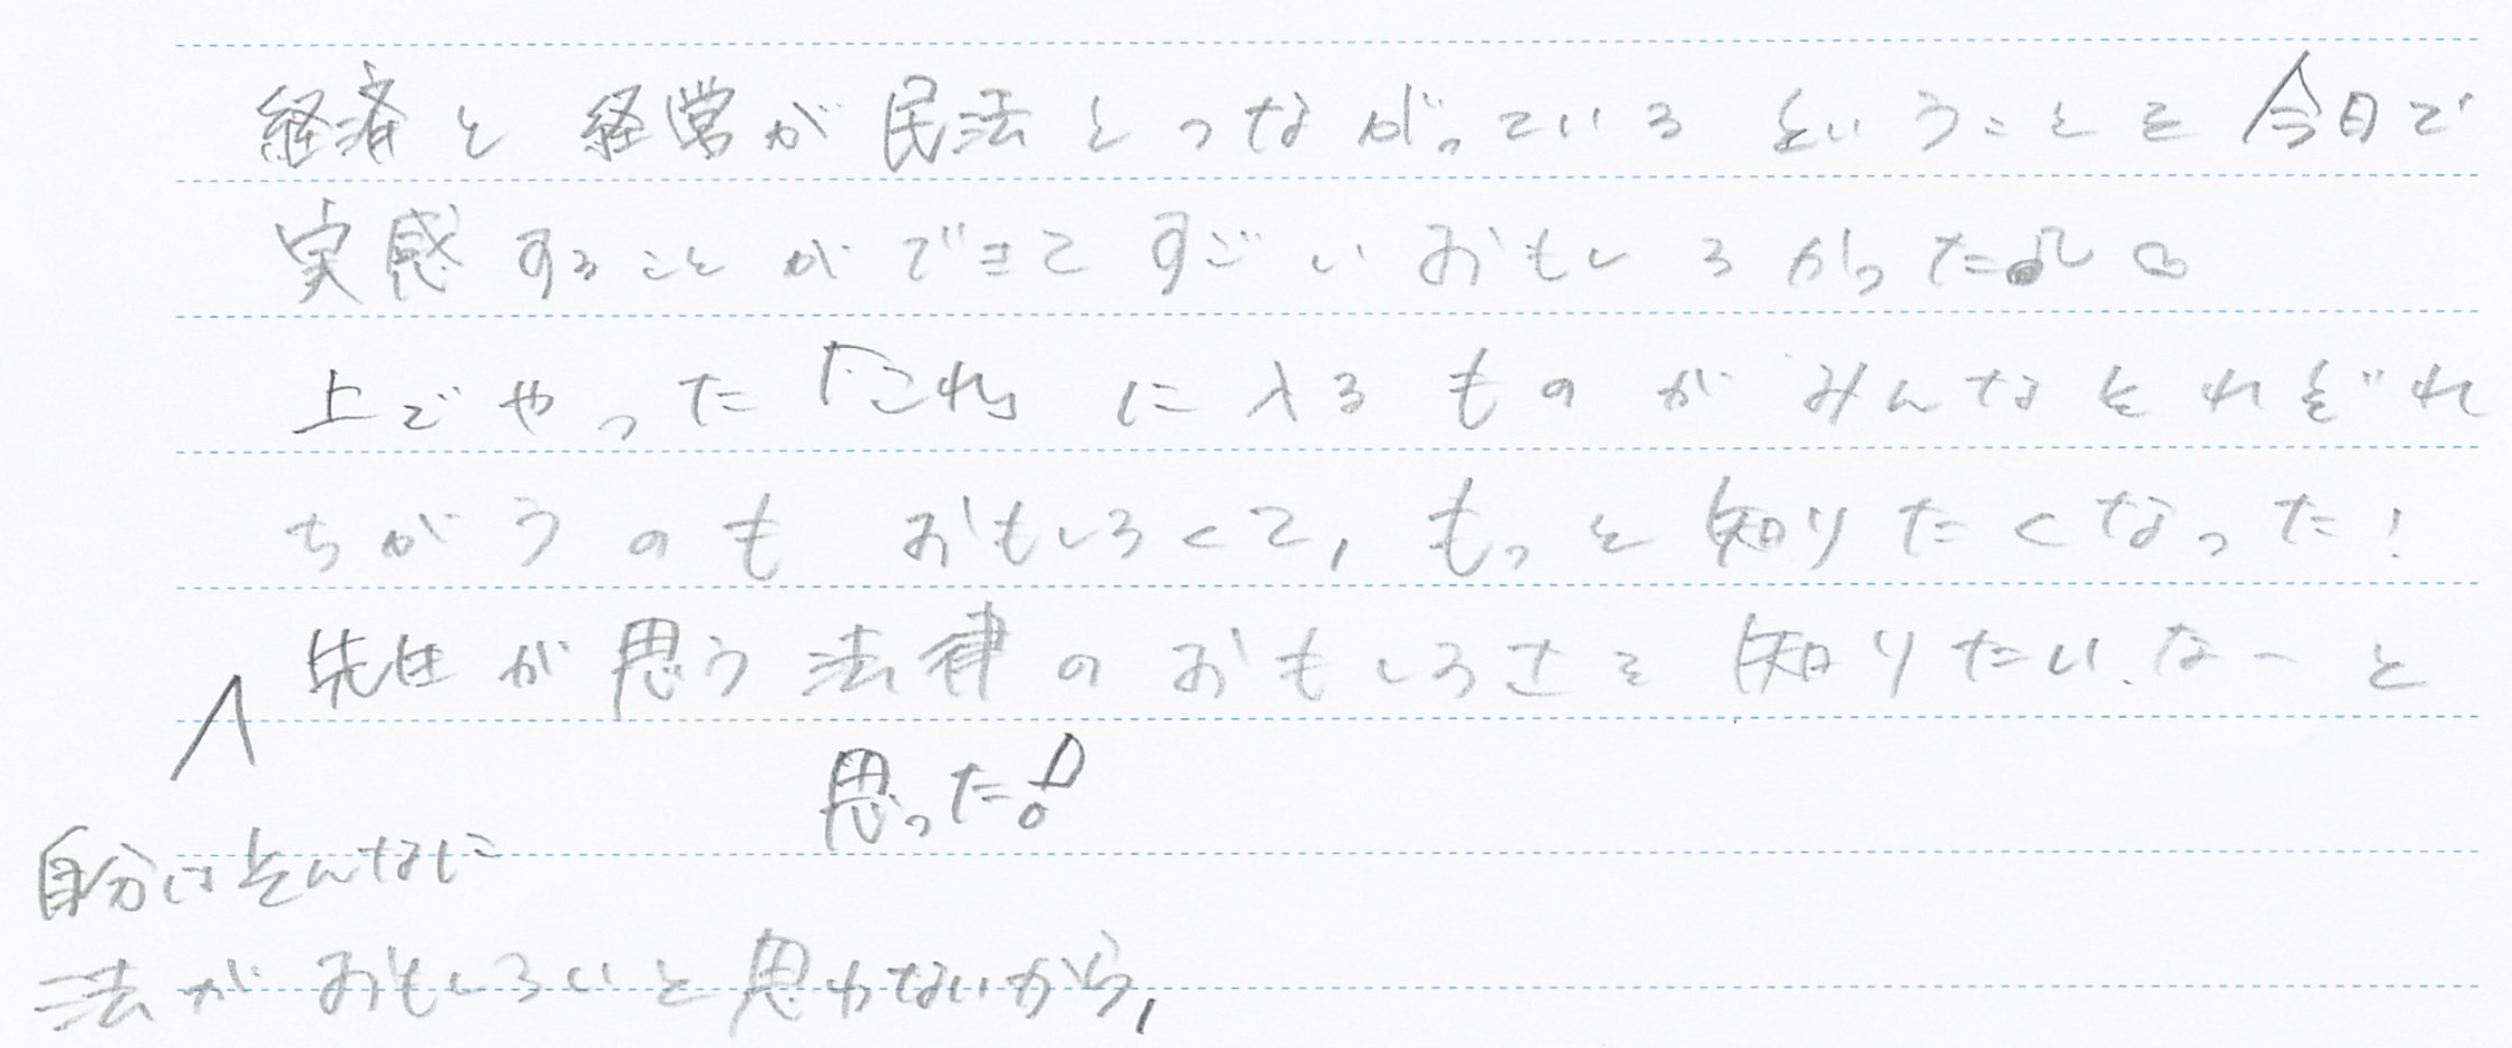 経済と経営が民法とつながっているということを今日で
実感することができてすごいおもしろかった
上でやった「これ」に入るものがみんなそれぞれ
ちがうのもおもしろくて,もっと知りたくなった!
先生が思う法律のおもしろさを知りたいなーと
思った!
自分はそんなに
法がおもしろいと思わないから,